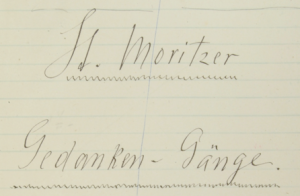 St. Moritzer
Gedanken-Gänge.